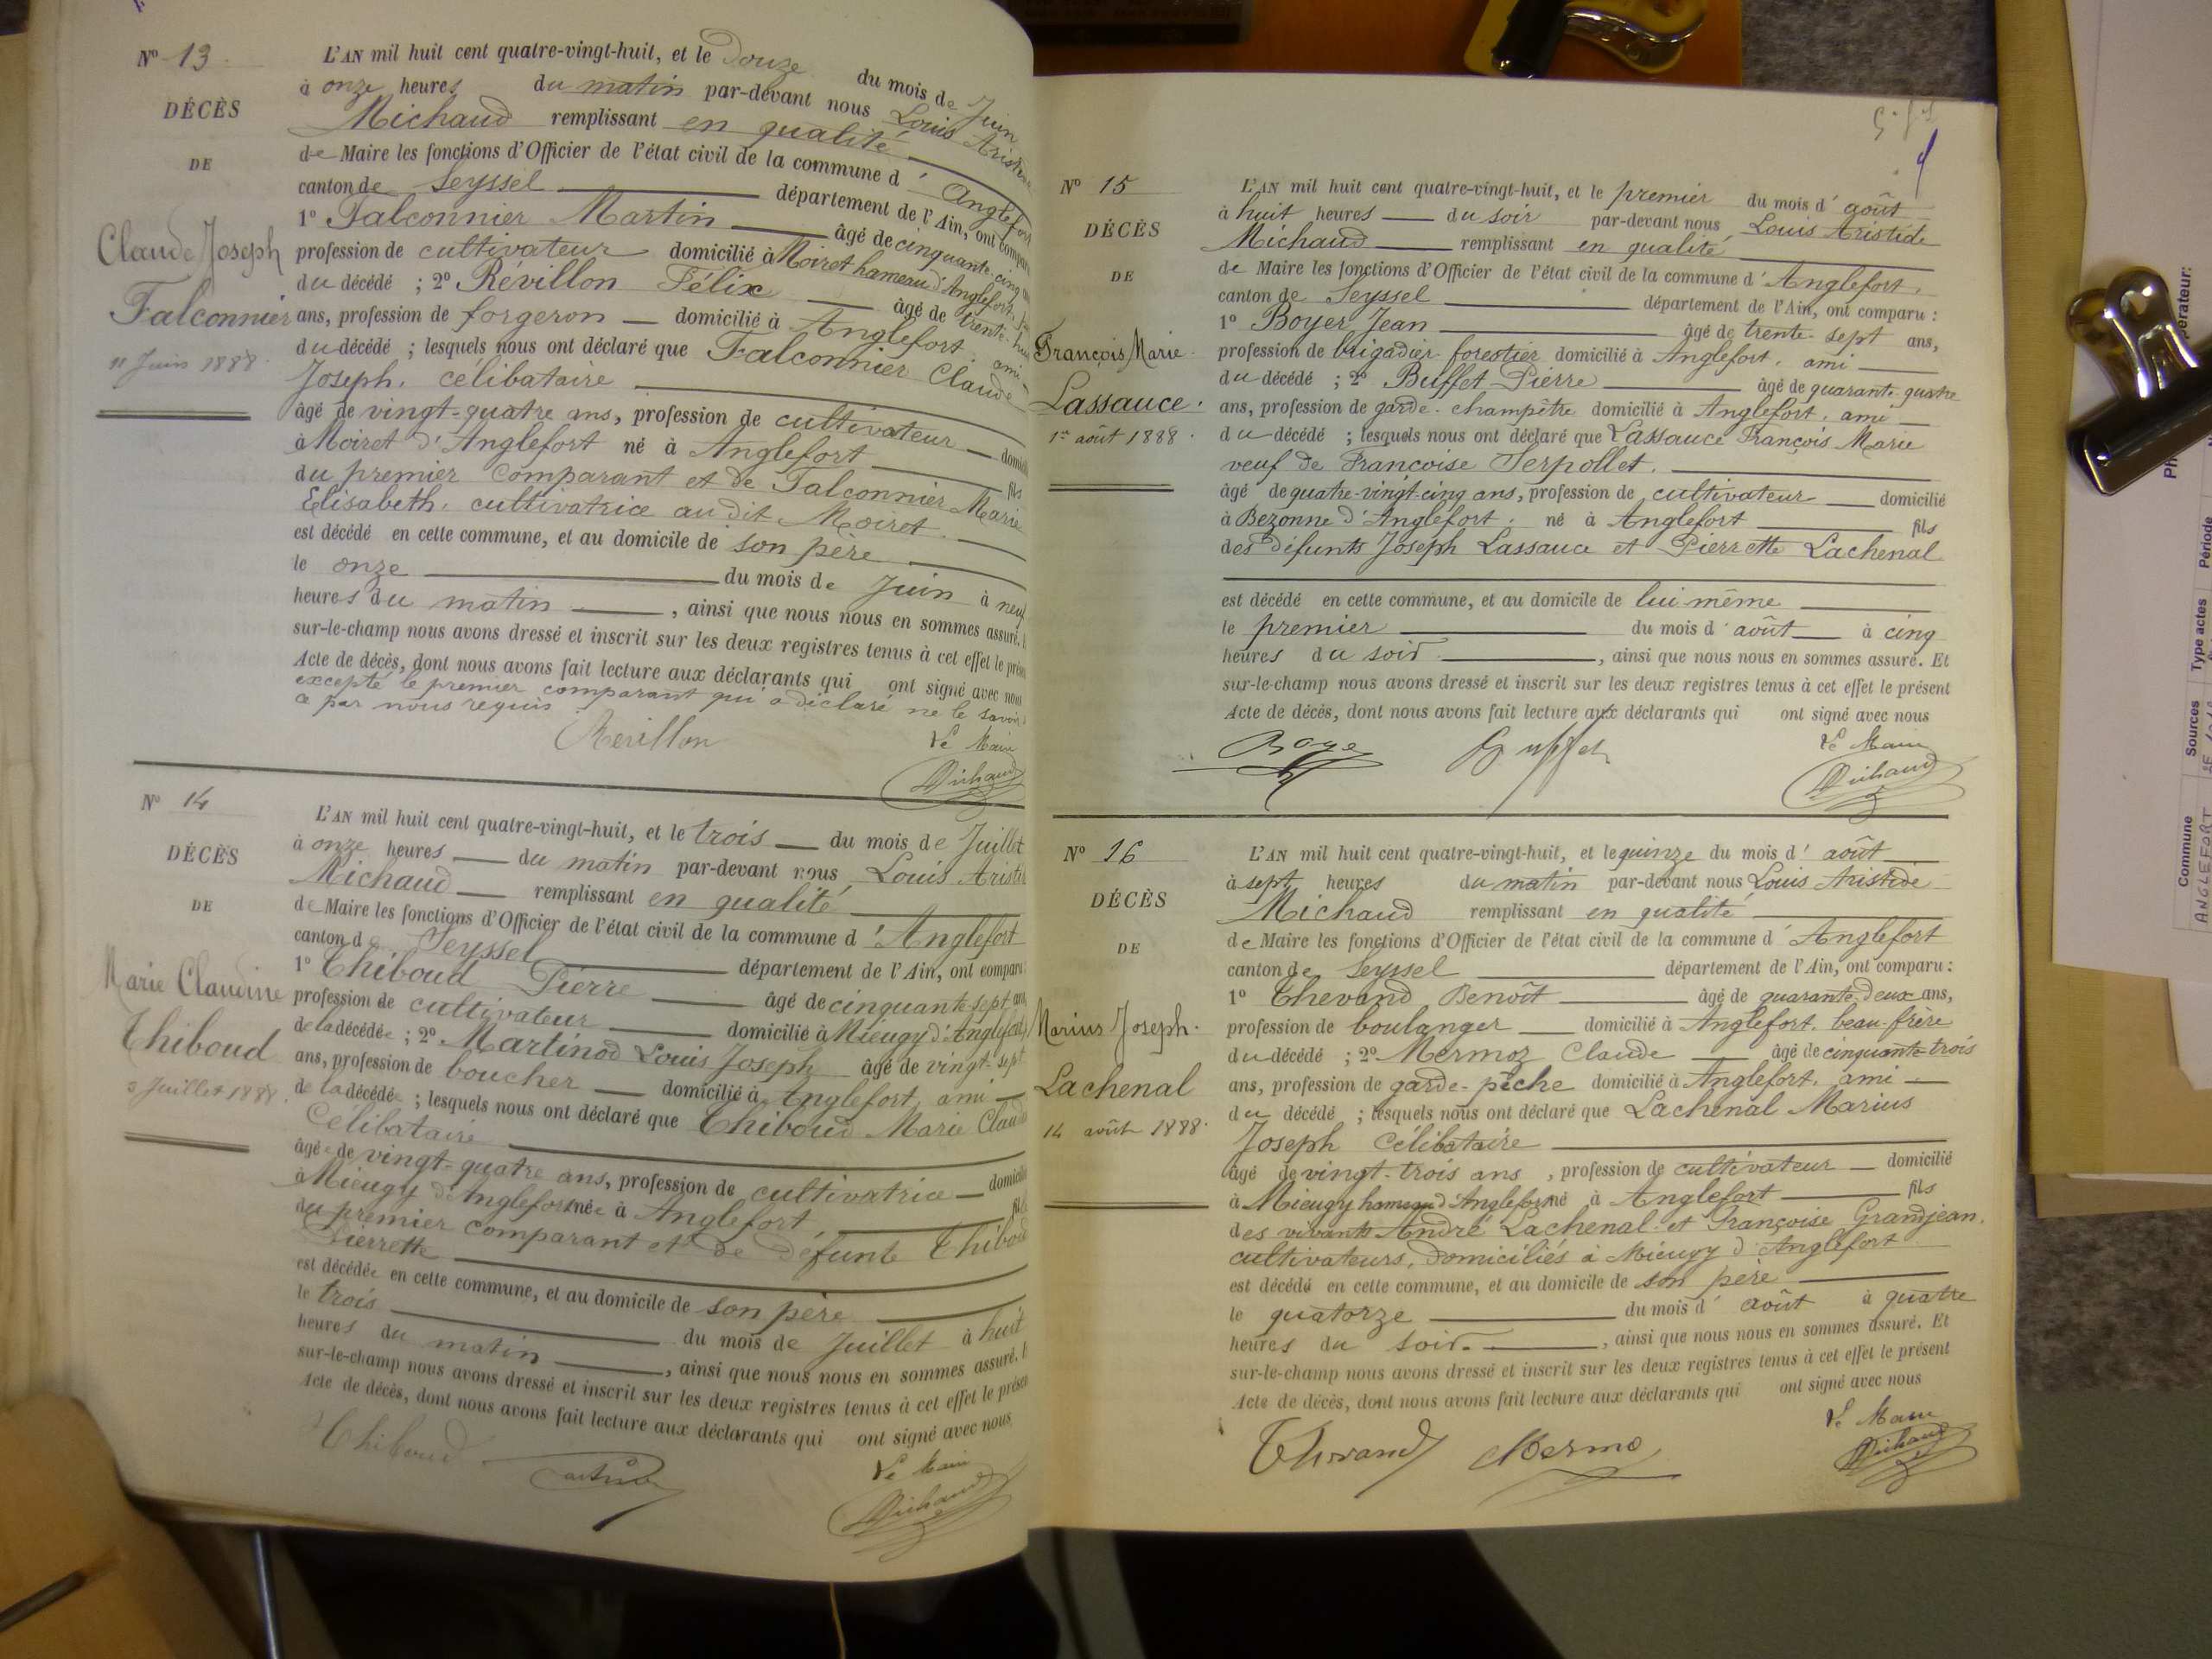 Nº 13
DÉCÈS
DE
Claude Joseph
Falconnier
11 Juin 1888.
L'AN mil huit cent quatre-vingt-huit, et le Douze du mois de Juin
à onze heures du matin par-devant nous Louis Aristide
Michaud remplissant en qualité
de Maire les fonctions d'Officier de l'état civil de la commune d'Anglefort
canton de Seyssel département de l'Ain, ont comparu
1º Falconnier Martin âgé de cinquante-cinq
profession de cultivateur domicilié à Moiret hameau d'Anglefort,
du décédé ; 2º Révillon Félix âgé de trente-huit
ans, profession de forgeron domicilié à Anglefort, ami
du décédé ; lesquels nous ont déclaré que Falconnier Claude
Joseph, célibataire
âgé de vingt-quatre ans, profession de cultivateur domicilié
à Moiret d'Anglefort né à Anglefort fils
du premier comparant et de Falconnier Marie
Elisabeth, cultivatrice au dit Moiret.
est décédé en cette commune, et au domicile de son père
le onze du mois de Juin à neuf
heures du matin , ainsi que nous nous en sommes assuré.
sur-le-champ nous avons dressé et inscrit sur les deux registres tenus à cet effet le présen
Acte de décès, dont nous avons fait lecture aux déclarants qui ont signé avec nous
excepté le premier comparant qui a déclaré ne le savoir
ce par nous requis.
Révillon
Le Maire
Michaud
Nº 14
DÉCÈS
DE
Marie Claudine
Thiboud
3 Juillet 1888.
L'AN mil huit cent quatre-vingt-huit, et le trois du mois de Juillet
à onze heures du matin par-devant nous Louis Aristid
Michaud remplissant en qualité
de Maire les fonctions d'Officier de l'état civil de la commune d'Anglefort
canton de Seyssel département de l'Ain, ont comparu
1º Thiboud Pierre âgé de cinquante-sept ans,
profession de cultivateur domicilié à Mieugy d'Anglefort,
de la décédée ; 2º Martinod Louis Joseph âgé de vingt-sept
ans, profession de boucher domicilié à Anglefort, ami
de la décédée ; lesquels nous ont déclaré que Thiboud Marie Claud
Célibataire
âgée de vingt-quatre ans, profession de cultivatrice domicili
à Mieugy d'Anglefort née à Anglefort fille
du premier comparant et de défunte Thiboud
Pierrette
est décédée en cette commune, et au domicile de son père
le trois du mois de Juillet à huit
heures du matin , ainsi que nous nous en sommes assuré.
sur-le-champ nous avons dressé et inscrit sur les deux registres tenus à cet effet le présen
Acte de décès, dont nous avons fait lecture aux déclarants qui ont signé avec nous.
Thiboud
Le Maire
Michaud
Nº 15
DÉCÈS
DE
François Marie
Lassauce.
1er août 1888.
L'AN mil huit cent quatre-vingt-huit, et le premier du mois d'août
à huit heures du soir par-devant nous Louis Aristide
Michaud remplissant en qualité
de Maire les fonctions d'Officier de l'état civil de la commune d'Anglefort,
canton de Seyssel département de l'Ain, ont comparu :
1º Boyer Jean âgé de trente-sept ans,
profession de brigadier forestier domicilié à Anglefort, ami
du décédé ; 2º Buffet Pierre âgé de quarante-quatre
ans, profession de garde-champêtre domicilié à Anglefort, ami
du décédé ; lesquels nous ont déclaré que Lassauce François Marie
veuf de Françoise Serpollet.
âgé de quatre-vingt-cinq ans, profession de cultivateur domicilié
à Bezonne d'Anglefort, né à Anglefort fils
des défunts Joseph Lassauce et Pierrette Lachenal
est décédé en cette commune, et au domicile de lui-même
le premier du mois d'août à cinq
heures du soir , ainsi que nous nous en sommes assuré. Et
sur-le-champ nous avons dressé et inscrit sur les deux registres tenus à cet effet le présent
Acte de décès, dont nous avons fait lecture aux déclarants qui ont signé avec nous
Boyer
Buffet
Le Maire
Michaud
Nº 16
DÉCÈS
DE
Marius Joseph
Lachenal
14 août 1888.
L'AN mil huit cent quatre-vingt-huit, et le quinze du mois d'août
à sept heures du matin par-devant nous Louis Aristide
Michaud remplissant en qualité
de Maire les fonctions d'Officier de l'état civil de la commune d'Anglefort
canton de Seyssel département de l'Ain, ont comparu :
1º Thevand Benoît âgé de quarante-deux ans,
profession de boulanger domicilié à Anglefort, beau-frère
du décédé ; 2º Mermoz Claude âgé de cinquante-trois
ans, profession de garde-pêche domicilié à Anglefort, ami
du décédé ; lesquels nous ont déclaré que Lachenal Marius
Joseph Célibataire
âgé de vingt-trois ans , profession de cultivateur domicilié
à Mieugy hameau d'Anglefort né à Anglefort fils
des vivants André Lachenal et Françoise Grandjean,
cultivateurs, domiciliés à Mieugy d'Anglefort
est décédé en cette commune, et au domicile de son père
le quatorze du mois d'août à quatre
heures du soir. , ainsi que nous nous en sommes assuré. Et
sur-le-champ nous avons dressé et inscrit sur les deux registres tenus à cet effet le présent
Acte de décès, dont nous avons fait lecture aux déclarants qui ont signé avec nous
Thevand
Mermo
Le Maire
Michaud
Commune
ANGLEFORT
Sources
Type actes
Période